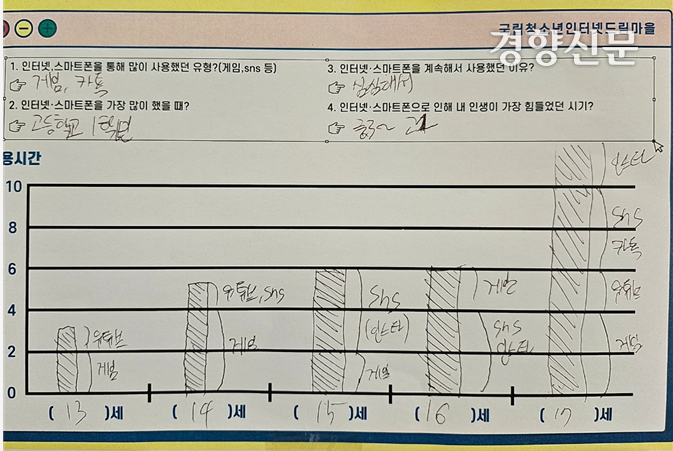 국립청소년인터넷드림마을
경향신문
1. 인터넷·스마트폰을 통해 많이 사용했던 유형?(게임,sns 등)
게임, 카톡
2. 인터넷·스마트폰을 가장 많이 했을 때?
고등학교 1학년
3. 인터넷·스마트폰을 계속해서 사용했던 이유?
심심해서
4. 인터넷·스마트폰으로 인해 내 인생이 가장 힘들었던 시기?
중3~ 고1
용시간
10
8
6
4
2
0
유튜브
게임
유튜브, sns
게임
sns
(인스타)
게임
게임
sns
인스타
인스타
sns
카톡
유튜브
게임
( 13 )세
( 14 )세
( 15 )세
( 16 )세
( 17 )세